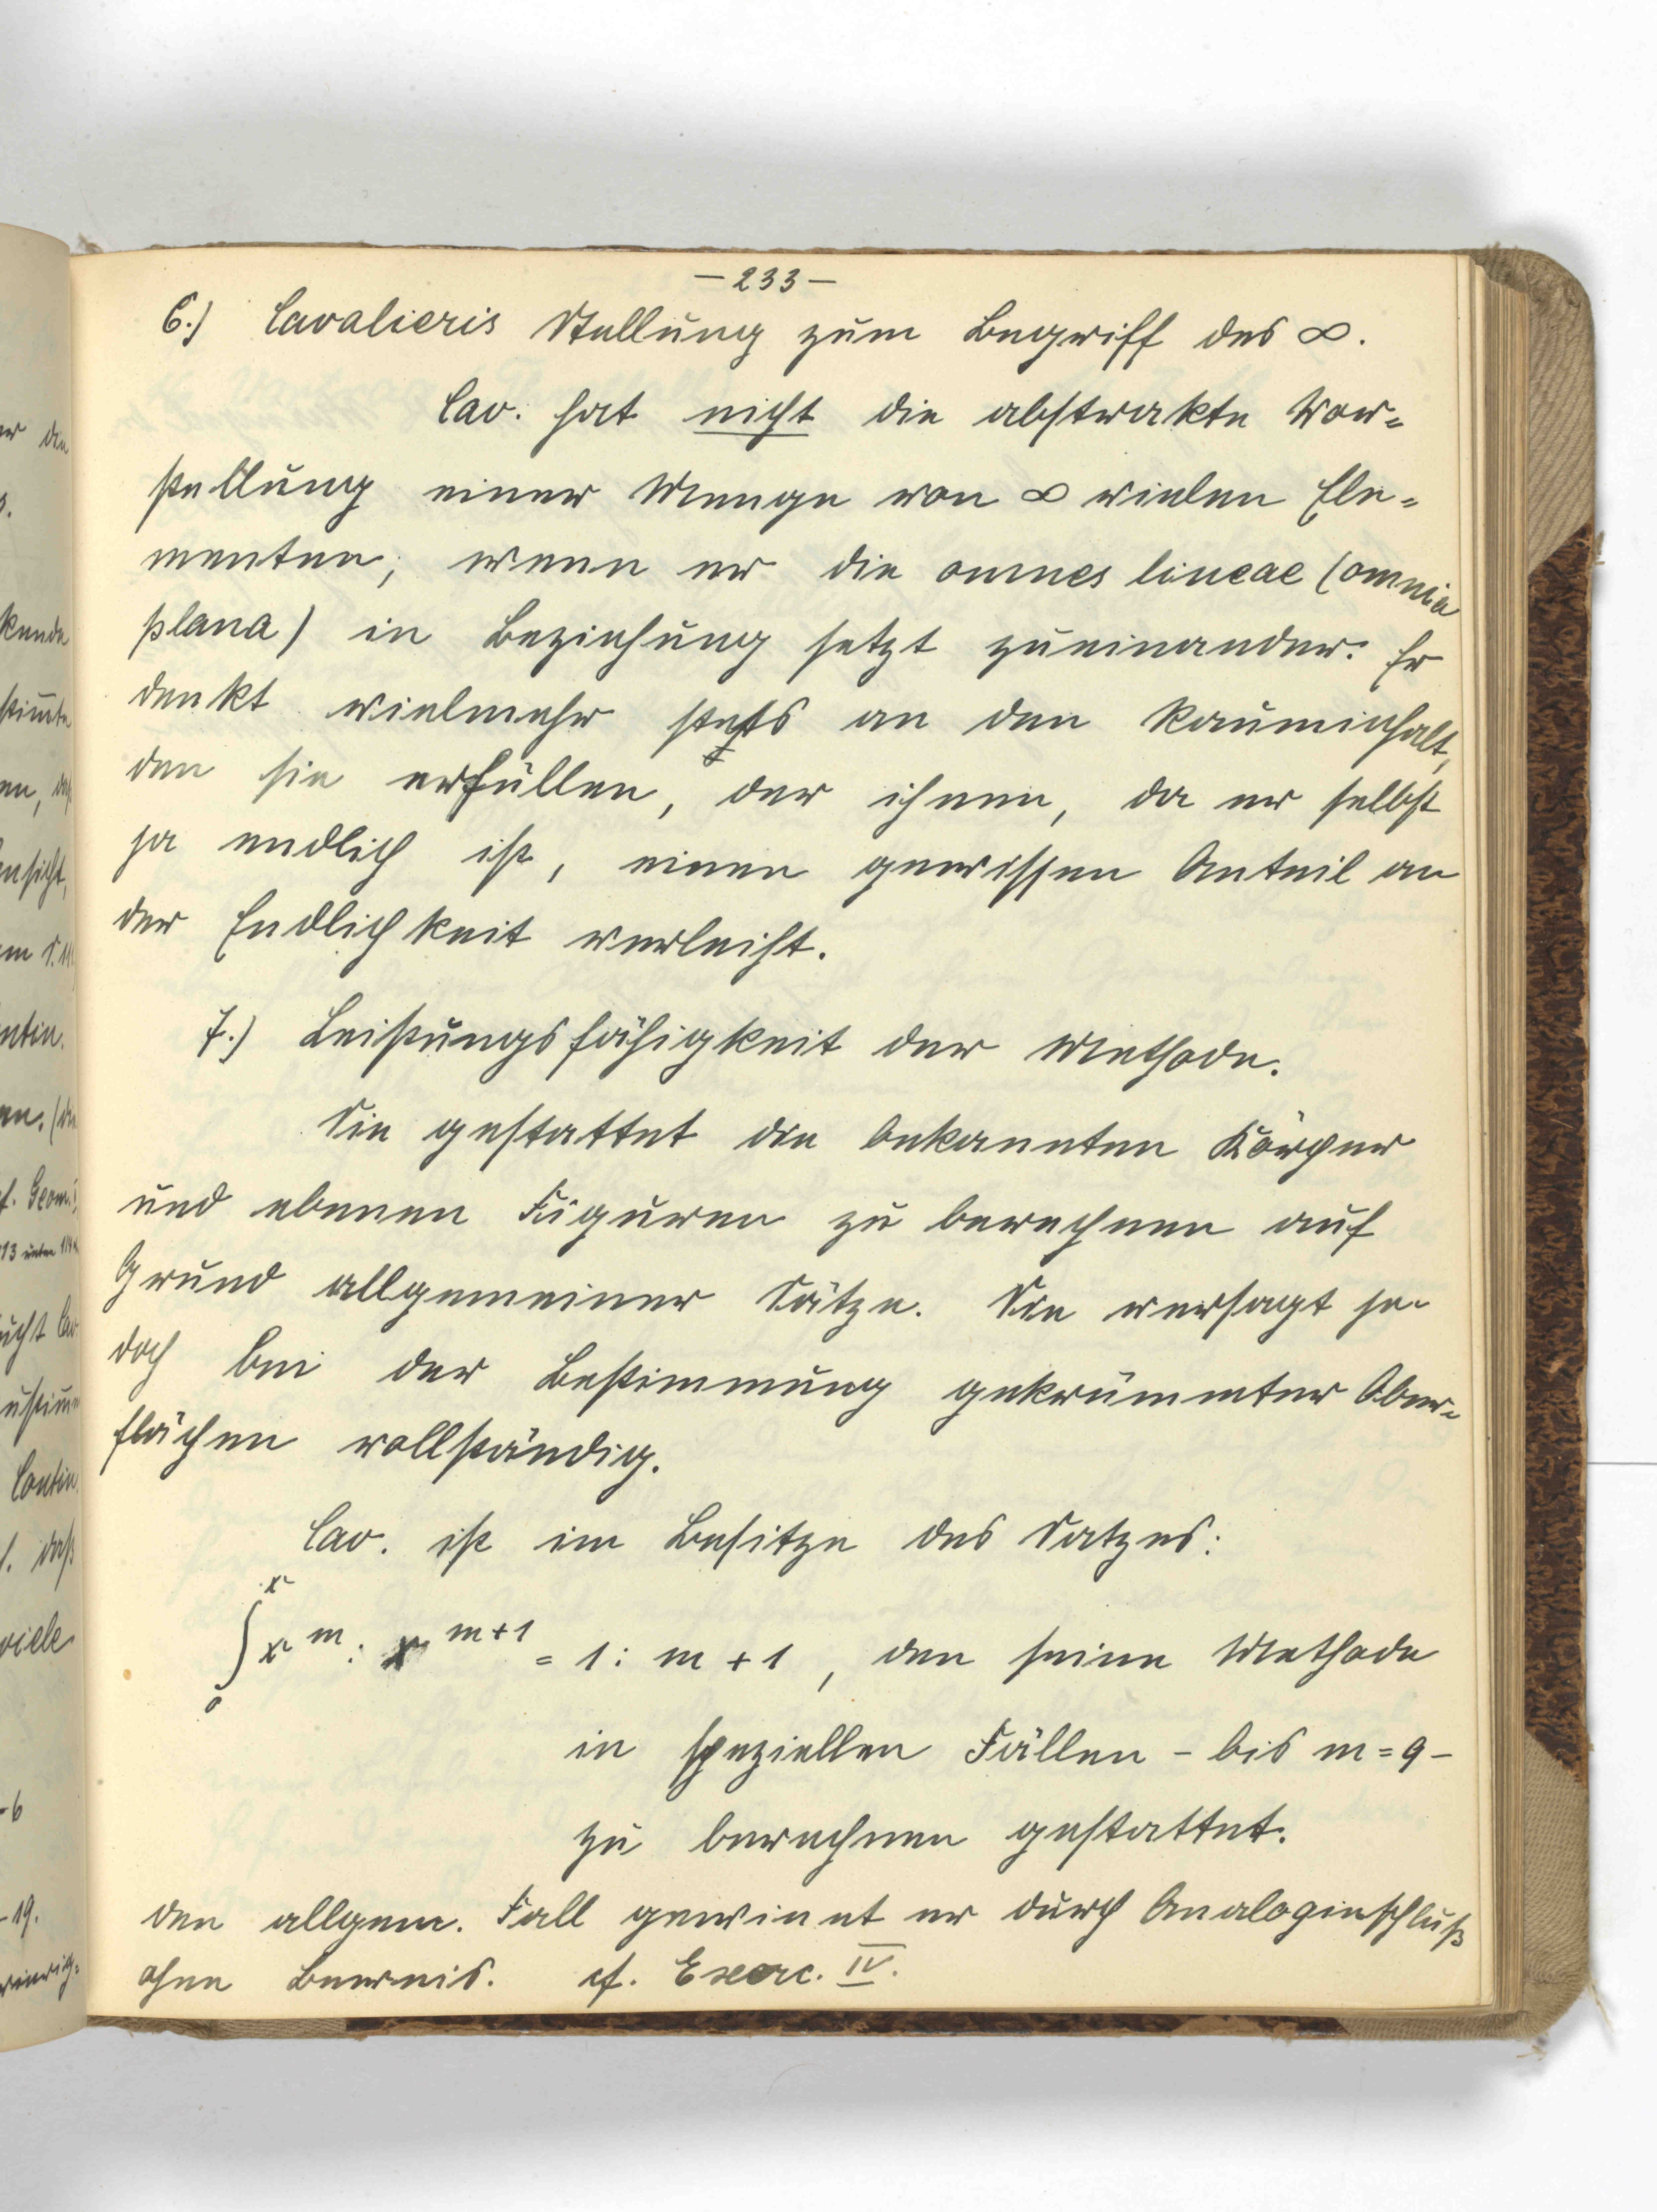 – 233 –
6.) Cavalieris Stellung zum Begriff des ∞.
Cav. hat nicht die abstrakte Vor=
stellung einer Menge von ∞ vielen Ele=
menten, wenn er die omnes lineae (omnia
plana) in Beziehung setzt zueinander. Er
denkt vielmehr stets an den Rauminhalt,
den sie erfüllen, der ihnen, da er selbst
ja endlich ist, einen gewissen Anteil an
der Endlichkeit verleiht.
7.) Leistungsfähigkeit der Methode.
Sie gestattet die bekannten Körper
und ebenen Figuren zu berechnen auf
Grund allgemeiner Sätze. Sie versagt je-
doch bei der Bestimmung gekrümmter Ober=
flächen vollständig.
Cav. ist im Besitze des Satzes:
∫₀ˣ x^m : x^(m+1) = 1 : m + 1 , den seine Methode
in speziellen Fällen – bis m = 9 –
zu berechnen gestattet.
den allgem. Fall gewinnt er durch Analogieschluß
ohne Beweis. cf. Exerc. IV.